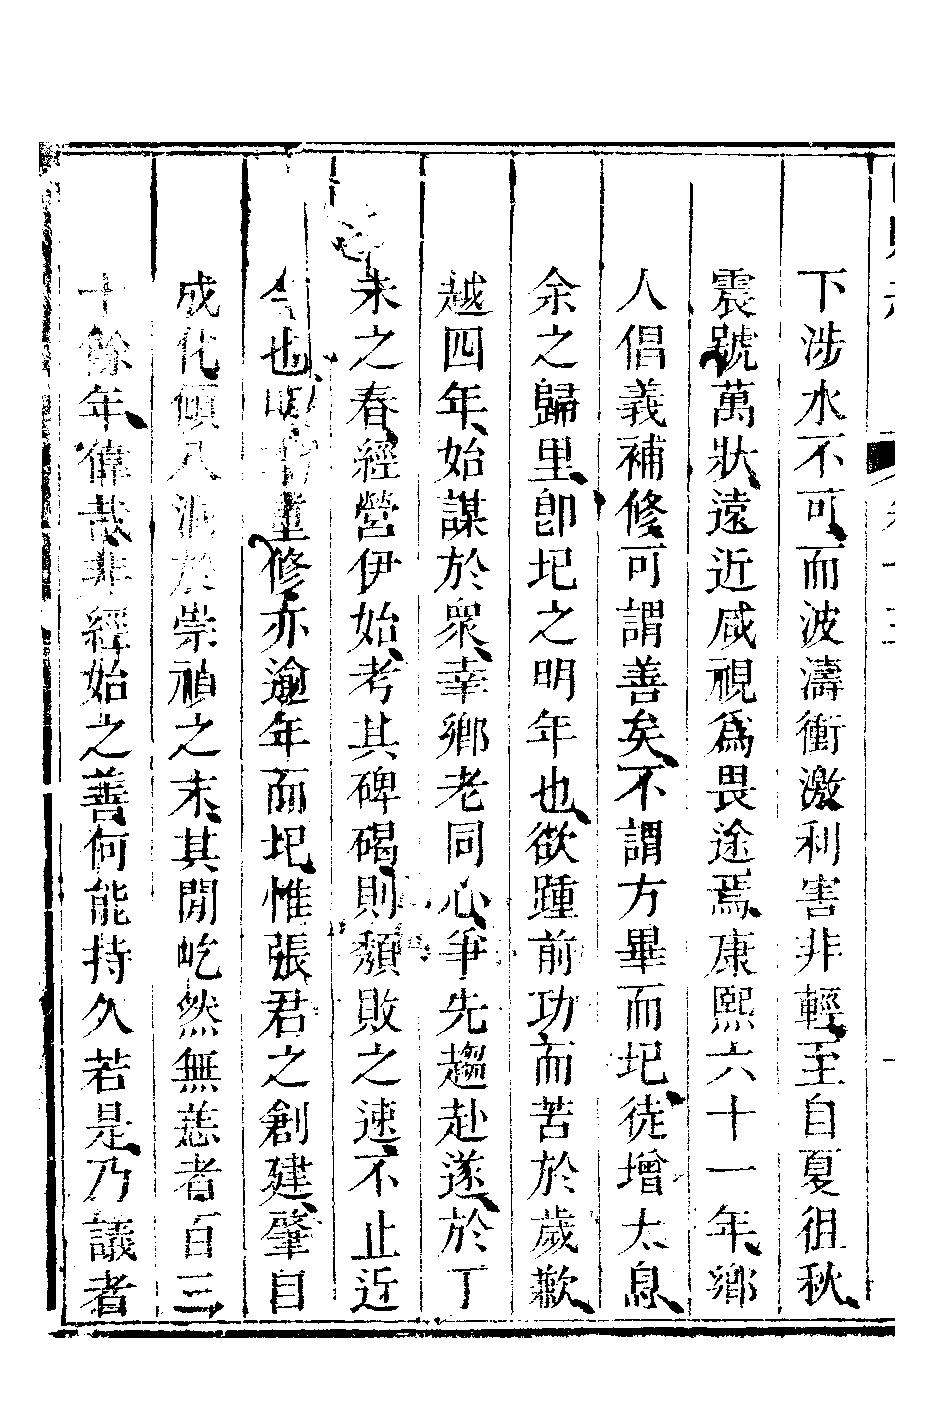 下涉水不可而波濤衝激利害非輕至自夏徂秋
震號萬狀遠近咸視爲畏途焉康熙六十一年鄉
人倡義補修可謂善矣不謂方畢而圮徒增太息
余之歸里卽圮之明年也欲踵前功而苦於歲歉
越四年始謀於衆幸鄉老同心爭先趨赴遂於丁
未之春經營伊始考其碑碣則頽敗之速不止近
今也 重修亦逾年而圮惟張君之創建肇自
成化傾 於崇禎之末其閒屹然無恙者百三
十餘年偉哉非經始之善何能持久若是乃議者